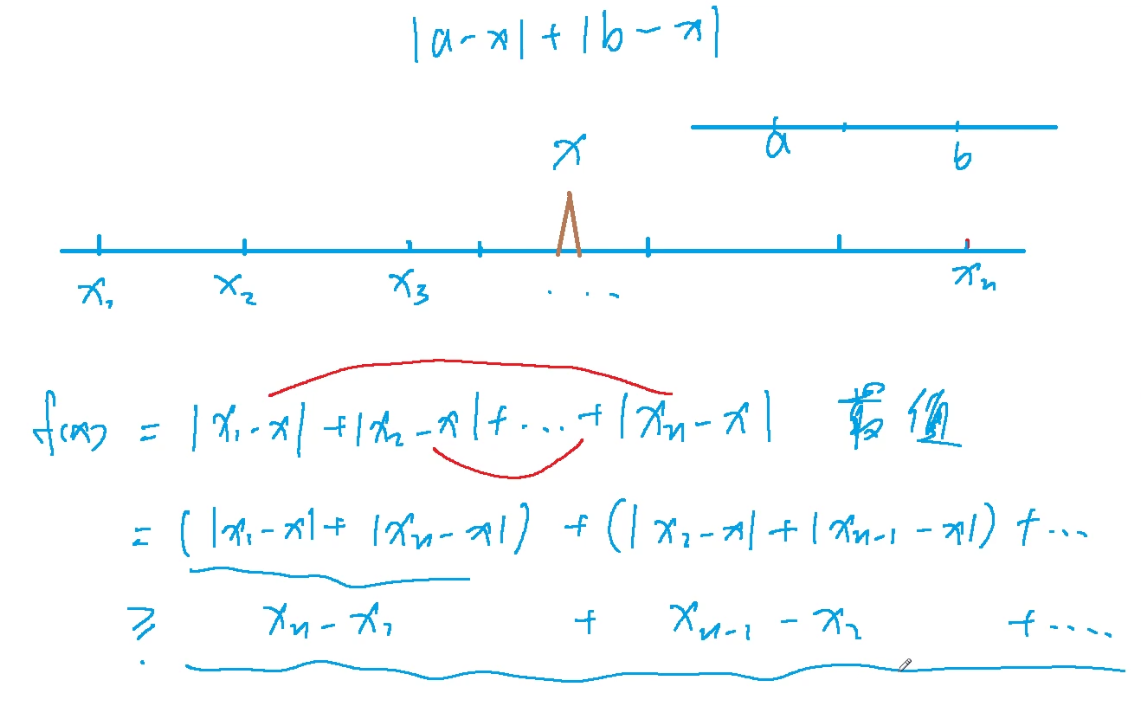 |a-x|+|b-x|
x
a b
x₁ x₂ x₃ ... xₙ
f(x) = |x₁-x|+|x₂-x|+...+|xₙ-x| 最值
= (|x₁-x|+|xₙ-x|)+(|x₂-x|+|xₙ₋₁-x|)+...
≥ xₙ-x₁ + xₙ₋₁-x₂ +....